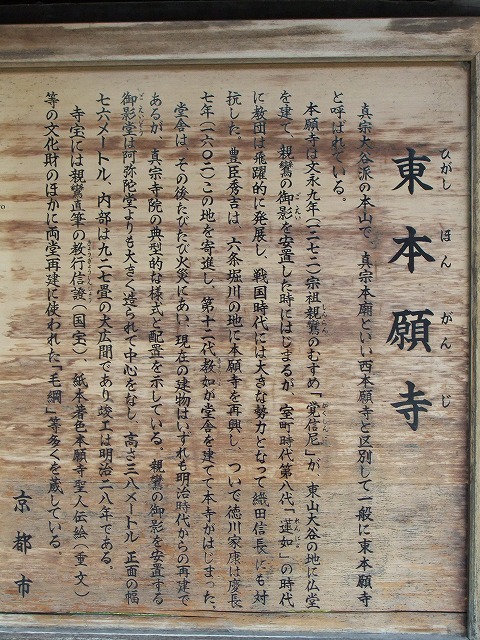 東本願寺
ひがしほんがんじ
真宗大谷派の本山で、真宗本廟といい西本願寺と区別して一般に東本願寺
と呼ばれている。
本願寺は文永九年(一二七二)宗祖親鸞のむすめ「覚信尼」が、東山大谷の地に仏堂
を建て、親鸞の御影を安置した時にはじまるが、室町時代第八代「蓮如」の時代
に教団は飛躍的に発展し、戦国時代には大きな勢力となって織田信長にも対
抗した。豊臣秀吉は、六条堀川の地に本願寺を再興し、ついで徳川家康は慶長
七年(一六〇二)この地を寄進し、第十二代教如が堂舎を建てて本寺がはじまった。
堂舎は、その後たびたび火災にあい、現在の建物はいずれも明治時代からの再建で
あるが、真宗寺院の典型的な様式と配置を示している。親鸞の御影を安置する
御影堂は阿弥陀堂よりも大きく造られて中心をなし、高さ三八メートル 正面の幅
七六メートル、内部は九二七畳の大広間であり竣工は明治二八年である。
寺宝には親鸞直筆の教行信證(国宝) 紙本着色本願寺聖人伝絵(重文)
等の文化財のほかに両堂再建に使われた「毛綱」等多くを蔵している。
京都市